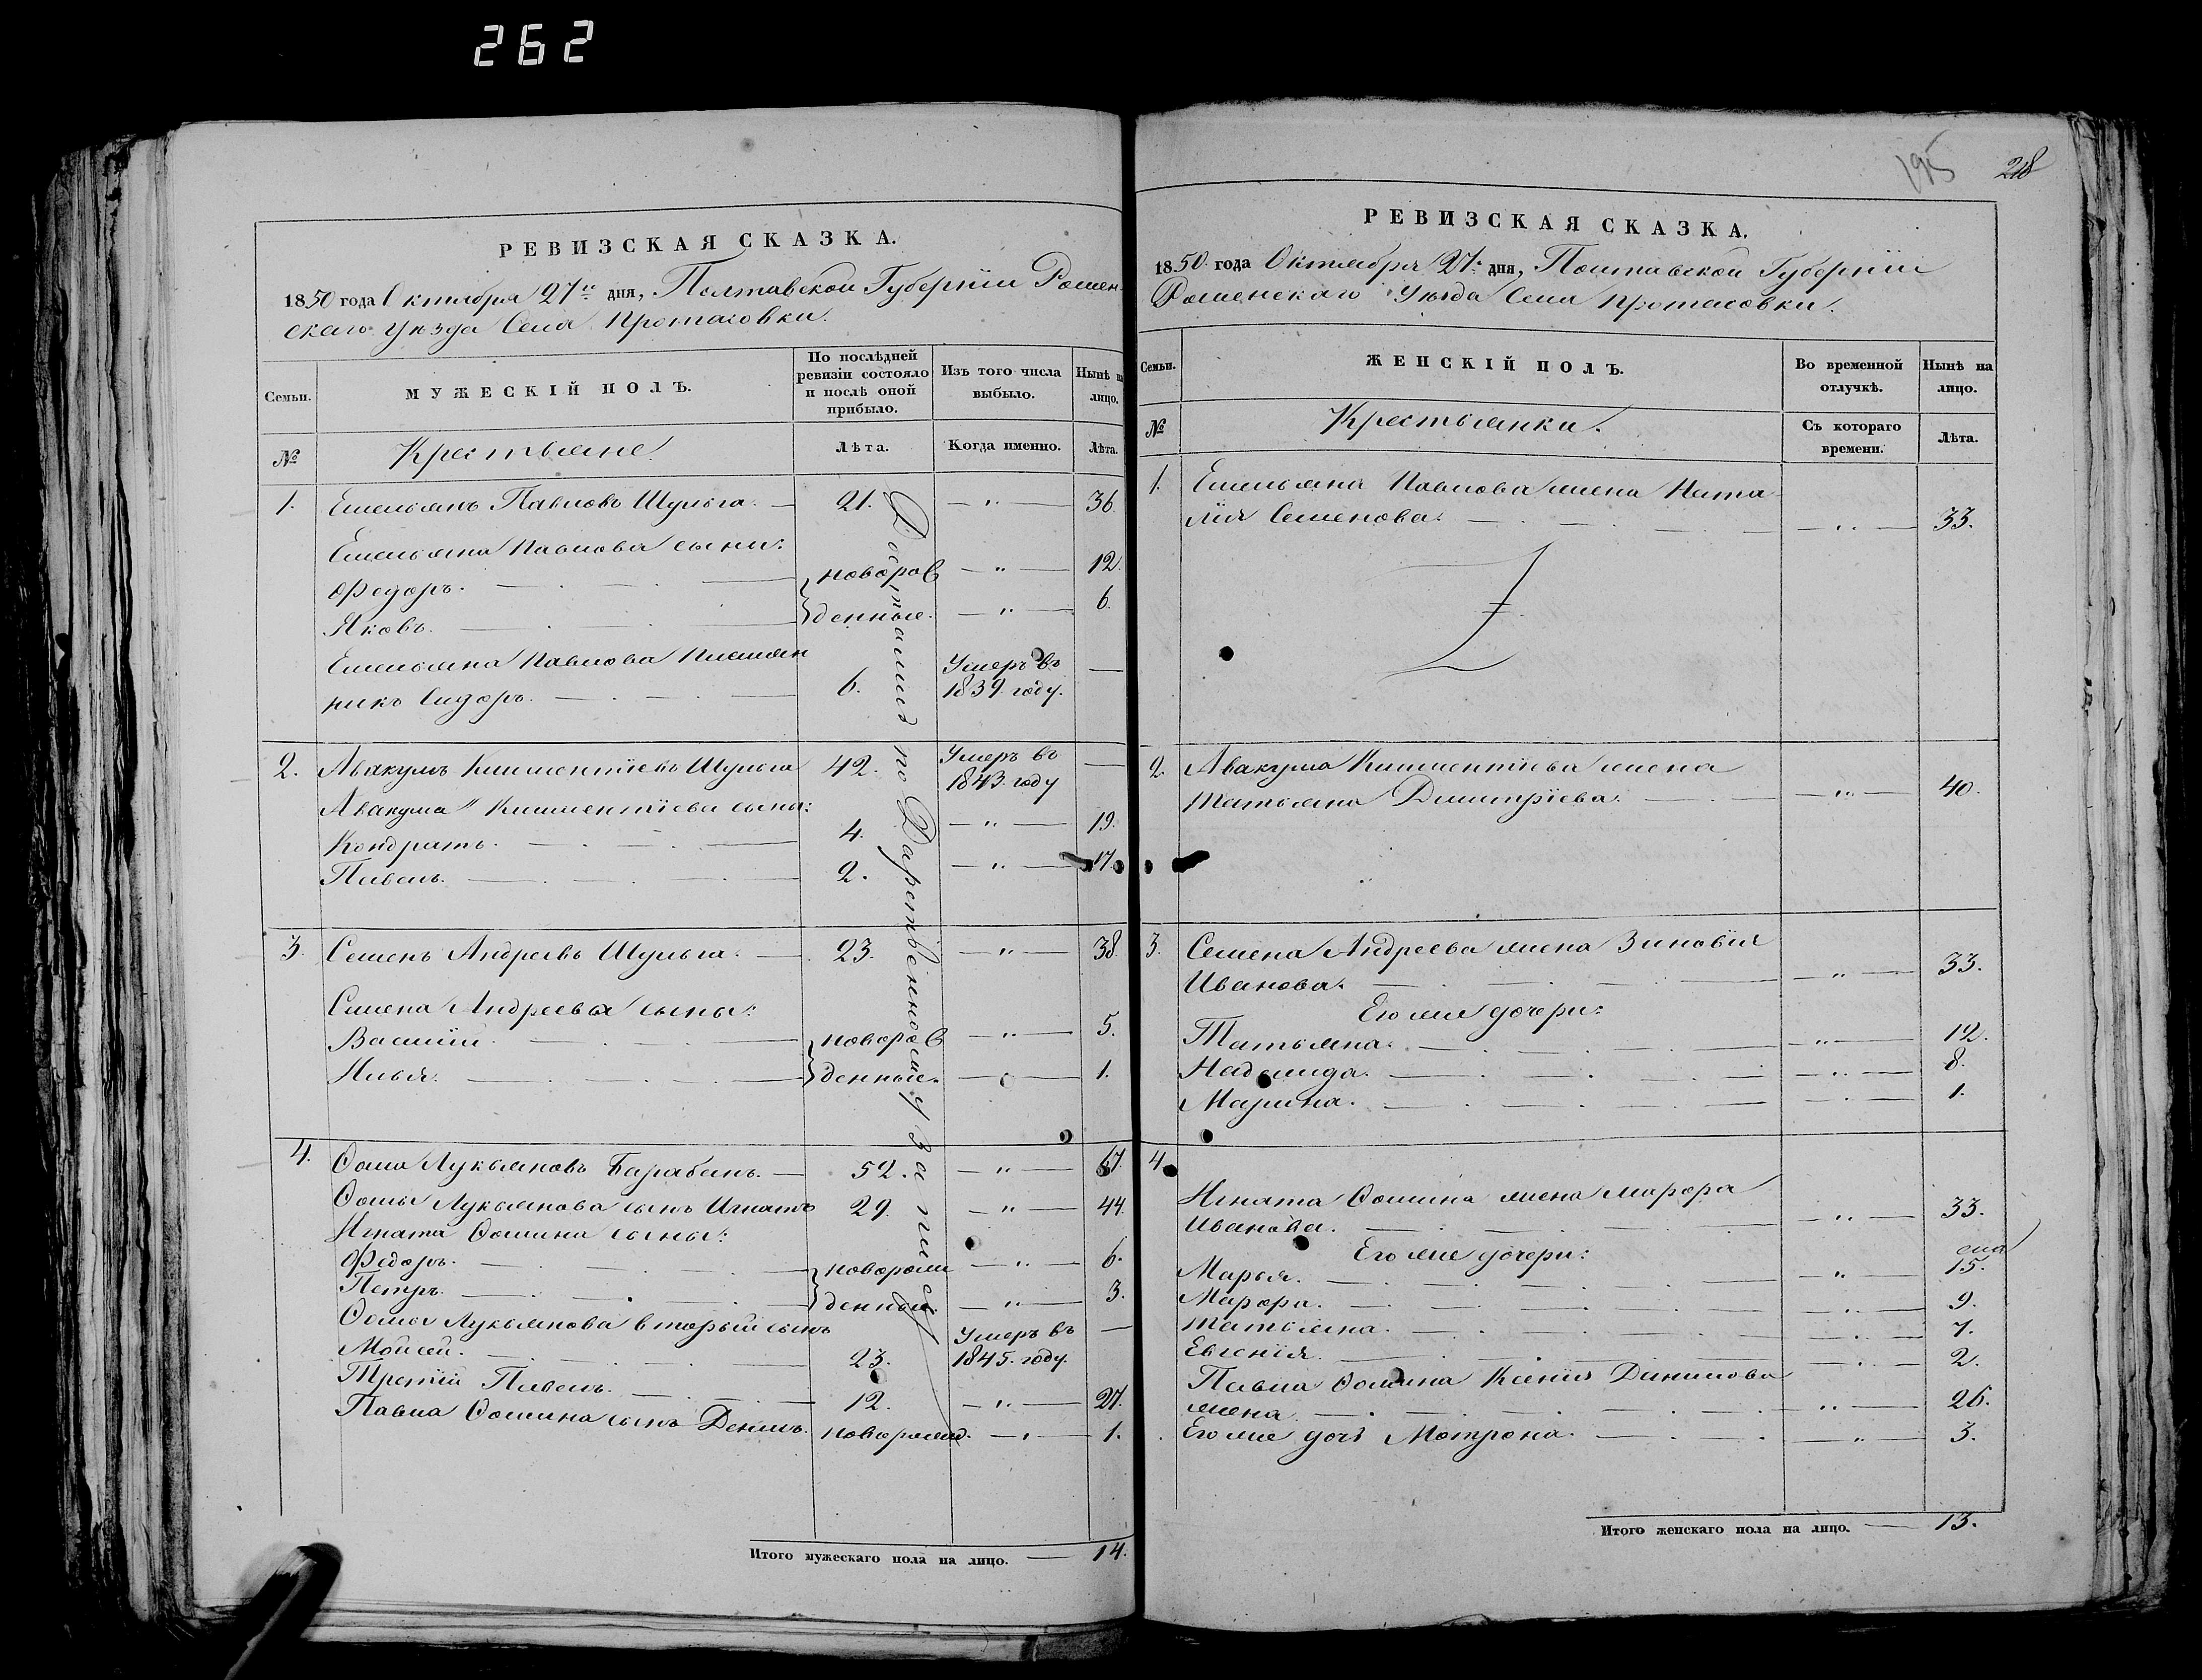 262
РЕВИЗСКАЯ СКАЗКА.
1850 года Октября 27го дня, Полтавской Губерніи Ромен-
скаго уѣзда Села Протасовки.
Семьи.
МУЖЕСКІЙ ПОЛЪ.
По послѣдней
ревизіи состояло
и послѣ оной
прибыло.
Изъ того числа
выбыло.
Нынѣ на
лицо.
№
Крестьяне.
Лѣта.
Когда именно.
Лѣта.
1. Емельянъ Павловъ Шульга. — 21. — „ — 36
Емельяна Павлова сыны:
Федоръ. — новорож — „ — 12.
Яковъ. — денные. — „ — 6.
Емельяна Павлова Племян
никъ Сидоръ. — 6. Умеръ въ 1839. году. —
2. Авакумъ Климентіевъ Шульга 42. Умеръ въ 1843. году —
Авакума Климентіева сыны:
Кондратъ. — 4. — „ — 19.
Павелъ. — 2. — „ — 17.
3. Семенъ Андреевъ Шульга. — 23. — „ — 38.
Семена Андреева сыны:
Василій. — новорож — „ — 5.
Илья. — денные. — „ — 1.
4. Фома Лукьяновъ Барабанъ. — 52. — „ — 67.
Фомы Лукьянова сынъ Игнатъ 29. — „ — 44.
Игната Фомина сыны:
Федоръ. — новорож — „ — 6.
Петръ. — денные. — „ — 3.
Фомы Лукьянова вторый сынъ
Мойсей. — 23. Умеръ въ 1845. году. —
Третій Павелъ. — 12. — „ — 27.
Павла Фомина сынъ Демянъ. новорожд. — „ — 1.
Достались по Дарственному Запису
Итого мужескаго пола на лицо. — 14.
195
218
РЕВИЗСКАЯ СКАЗКА.
1850. года Октября 27го дня, Полтавской Губерніи
Роменскаго Уѣзда Села Протасовки.
Семьи.
ЖЕНСКІЙ ПОЛЪ.
Во временной
отлучкѣ.
Нынѣ на
лицо.
№
Крестьянки.
Съ котораго
времени.
Лѣта.
1. Емельяна Павлова жена Ната-
лія Семенова. — „ — 33.
2. Авакума Климентіева жена
Татьяна Димитріева. — „ — 40.
3. Семена Андреева жена Зиновія
Иванова. — „ — 33.
Его же дочери:
Татьяна. — „ — 12.
Надежда. — „ — 8.
Марина. — „ — 1.
4.
Игната Фомина жена Марфа
Иванова. — „ — 33.
Его же дочери:
Марья. — „ — 15.
Марфа. — „ — 9.
Татьяна. — „ — 7.
Евгенія. — „ — 2.
Павла Фомина Ксенія Данилова
жена. — „ — 26.
Его же дочь Мотрона. — „ — 3.
Итого женскаго пола на лицо. — 13.